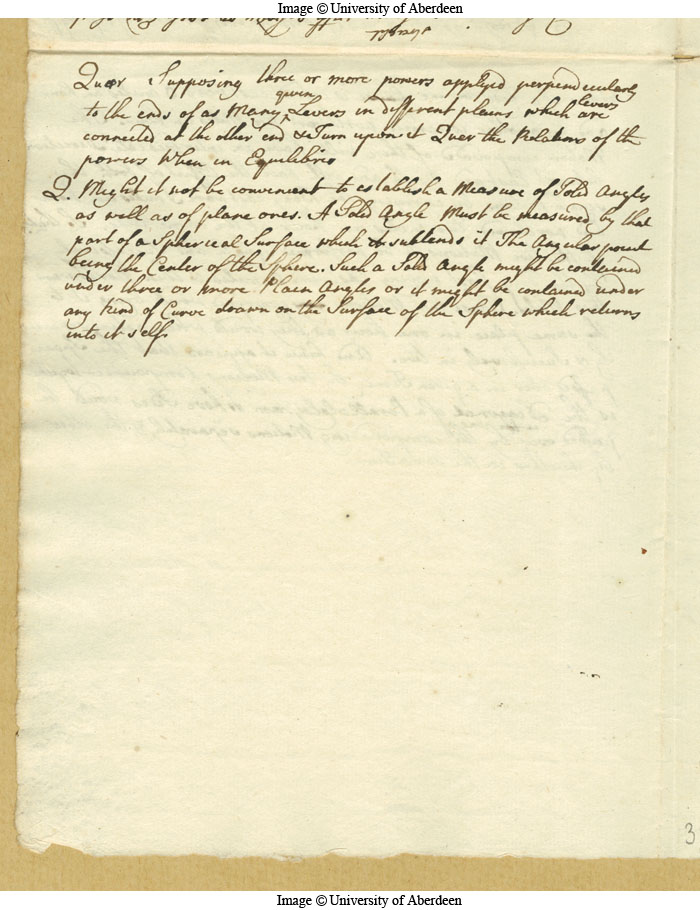 Image © University of Aberdeen
Quær Supposing three or more powers applyed perpendicularly
to the ends of as Many given Levers in different plains which levers are
connected at the other end & Turn upon it Quer the Relations of the
powers When in Equilibrio
Q. Might it not be convenient to establish a Measure of Solid Angles
as well as of plane ones. A Solid Angle Must be measured by that
part of a Spherical Surface which subtends it The Angular point
being the Center of the Sphere. Such a Solid Angle might be contained
under three or more Plain Angles or it might be contained under
any kind of Curve drawn on the Surface of the Sphere which returns
into it self
3
Image © University of Aberdeen